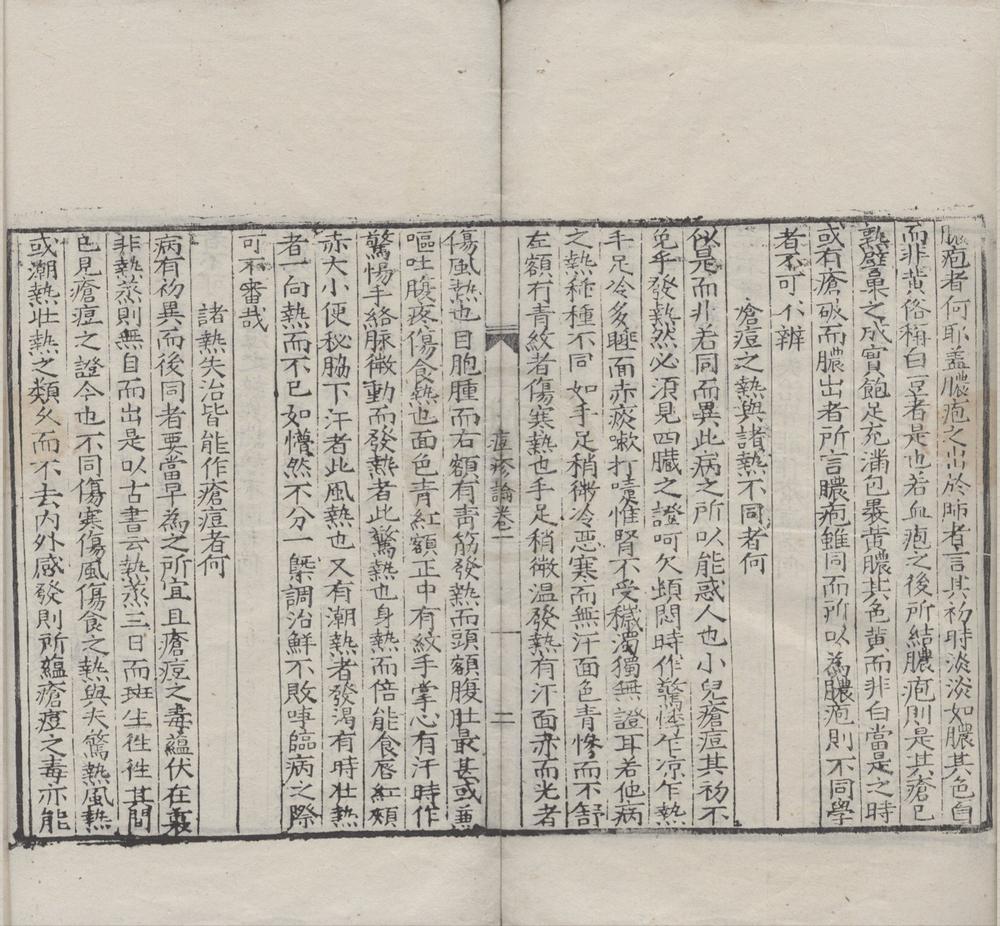 膿疱者何耶盖膿疱之出於肺者言其初時淡淡如膿其色白
而非黄俗稱白豆者是也若血疱之後所結膿疱則是其瘡已
熟壁菓之成實飽足充滿包裹黄膿其色黄而非白當是之時
或有瘡破而膿出者所言膿疱雖同而所以為膿疱則不同學
者不可不辨
瘡痘之熱與諸熱不同者何
似是而非若同而異此病之所以能惑人也小兒瘡痘其初不
免乎發熱然必須見四臓之證呵欠煩悶時作驚悸乍凉乍熱
手足冷多睡面赤痰嗽打嚏惟腎不受穢濁獨無證耳若他病
之熱種種不同如手足稍微冷惡寒而無汗面色青慘而不舒
左額有青紋者傷寒熱也手足稍微温發熱有汗面赤而光者
痘疹論卷一
二
傷風熱也目胞腫而右額有青筋發熱而頭額腹肚最甚或兼
嘔吐腹疼傷食熱也面色青紅額正中有紋手掌心有汗時作
驚惕手絡脉微動而發熱者此驚熱也身熱而倍能食唇紅頰
赤大小便秘脇下汗者此風熱也又有潮熱者發渴有時壯熱
者一向熱而不已如懵然不分一槩調治鮮不敗事臨病之際
可不審哉
諸熱失治皆能作瘡痘者何
病有初異而後同者要當早為之所宜且瘡痘之毒蘊伏在裏
非熱蒸則無自而出是以古書云熱蒸三日而班生徃徃其間
已見瘡痘之證今也不同傷寒傷風傷食之熱與夫驚熱風熱
或潮熱壯熱之類久而不去内外感發則所蘊瘡痘之毒亦能